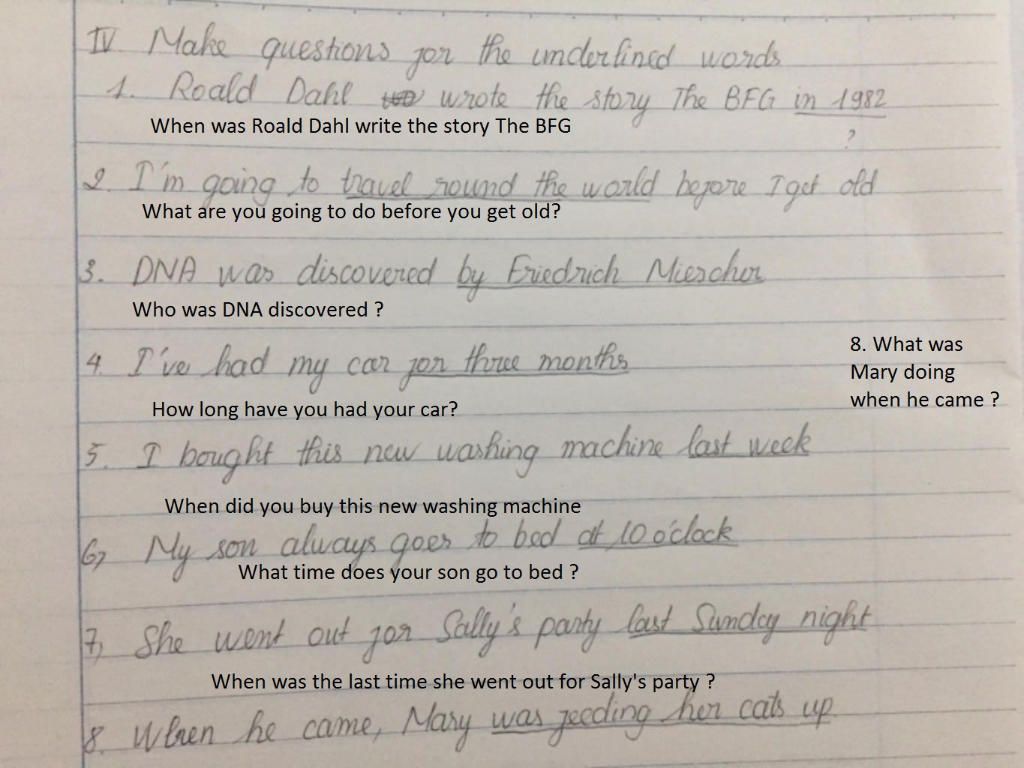 IV. Make questions for the underlined words
1. Roald Dahl wrote the story The BFG in 1982
When was Roald Dahl write the story The BFG
?
2. I'm going to travel round the world before I get old
What are you going to do before you get old?
3. DNA was discovered by Friedrich Miescher
Who was DNA discovered ?
4. I've had my car for three months
8. What was
Mary doing
when he came ?
How long have you had your car?
5. I bought this new washing machine last week
When did you buy this new washing machine
6, My son always goes to bed at 10 o'clock
What time does your son go to bed ?
7, She went out for Sally's party last Sunday night
When was the last time she went out for Sally's party ?
8. When he came, Mary was feeding her cats up